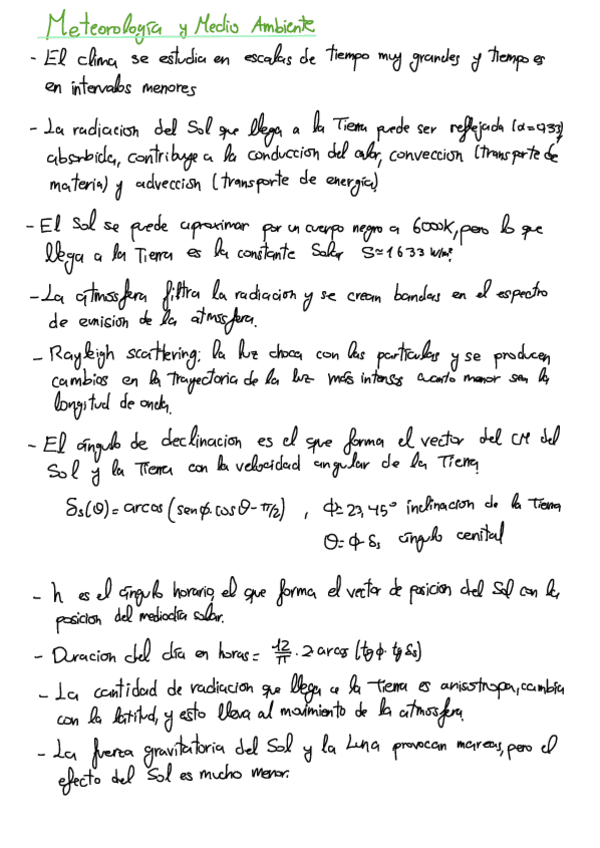 Meteorología y Medio Ambiente
- El clima se estudia en escalas de tiempo muy grandes y tiempo es
en intervalos menores
- La radiacion del Sol que llega a la Tierra puede ser reflejada (α=0'33)
absorbida, contribuye a la conduccion del calor, conveccion (transporte de
materia) y adveccion (transporte de energía)
- El Sol se puede aproximar por un cuerpo negro a 6000K, pero lo que
llega a la Tierra es la constante Solar S≈1633 W/m²
- La atmosfera filtra la radiacion y se crean bandas en el espectro
de emision de la atmosfera.
- Rayleigh scattering: la luz choca con las particulas y se producen
cambios en la trayectoria de la luz más intensos cuanto menor sea la
longitud de onda.
- El ángulo de declinacion es el que forma el vector del CM del
Sol y la Tierra con la velocidad angular de la Tierra
δs(θ) = arcos (sen ϕ·cos θ - π/2) , ϕ=23,45° inclinacion de la Tierra
θ= ϕ-δs ángulo cenital
- h es el ángulo horario, el que forma el vector de posicion del Sol con la
posicion del mediodía solar.
- Duracion del día en horas = 12/π · 2 arcos (tg ϕ · tg δs)
- La cantidad de radiacion que llega a la Tierra es anisotropa, cambia
con la latitud, y esto lleva al movimiento de la atmosfera.
- La fuerza gravitatoria del Sol y la Luna provocan mareas, pero el
efecto del Sol es mucho menor.